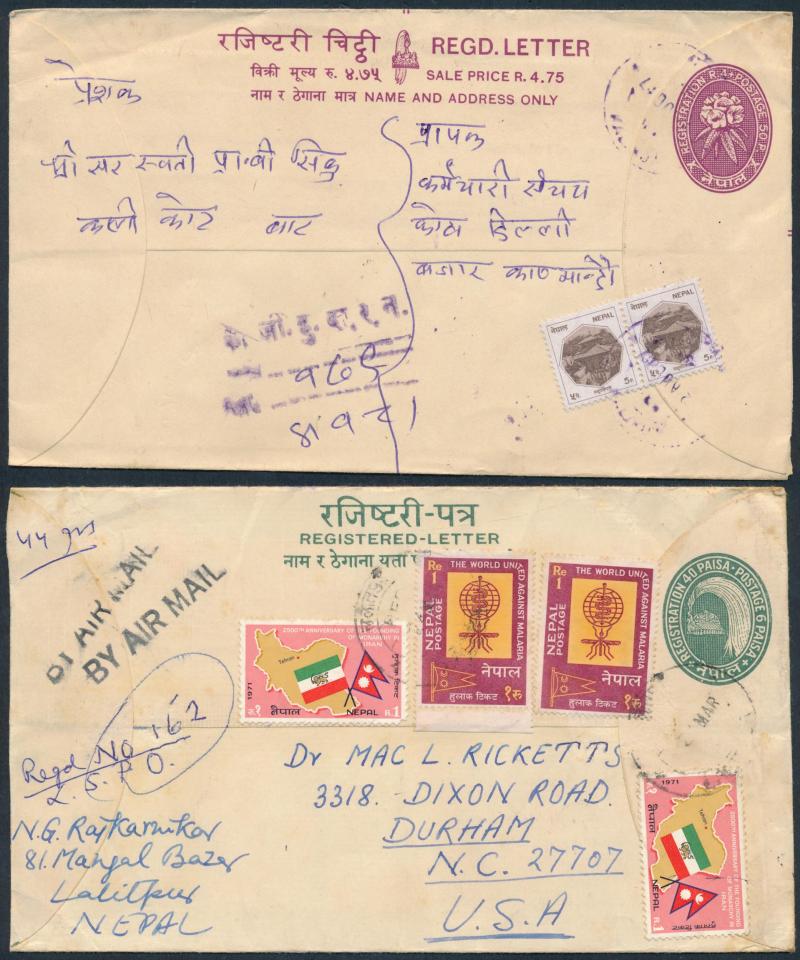 रजिष्टरी चिट्ठी REGD. LETTER
विक्री मूल्य रु. ४.७५ SALE PRICE R. 4.75
नाम र ठेगाना मात्र NAME AND ADDRESS ONLY
REGISTRATION R. 4 + POSTAGE 50 P.
नेपाल
प्रेशक
श्री सरस्वती
कोट बाट
प्रापक
कर्मचारी संचय
कोष डिल्ली
बजार काठमान्डौ
नेपाल NEPAL
५प. 5P.
नेपाल NEPAL
५प. 5P.
रजिष्टरी-पत्र
REGISTERED-LETTER
नाम र ठेगाना यता
REGISTRATION 40 PAISA · POSTAGE 6 PAISA
नेपाल
BY AIR MAIL
BY AIR MAIL
2500TH ANNIVERSARY OF THE FOUNDING
OF MONARCHY IN
IRAN
Tehran
1971
रु.१ नेपाल NEPAL R.1
हुलाक टिकट
Re 1 THE WORLD UNITED AGAINST MALARIA
NEPAL POSTAGE
नेपाल
हुलाक टिकट १रु
Re 1 THE WORLD UNITED AGAINST MALARIA
NEPAL POSTAGE
नेपाल
हुलाक टिकट १रु
MAR
Regd No 162
L.S.P.O.
N.G. Rajkarnikar
81. Mangal Bazar
Lalitpur
NEPAL
Dr MAC L. RICKETTS
3318. DIXON ROAD.
DURHAM
N.C. 27707
U.S.A
1971
2500TH ANNIVERSARY OF THE FOUNDING
OF MONARCHY IN
IRAN
Tehran
नेपाल NEPAL R.1
हुलाक टिकट